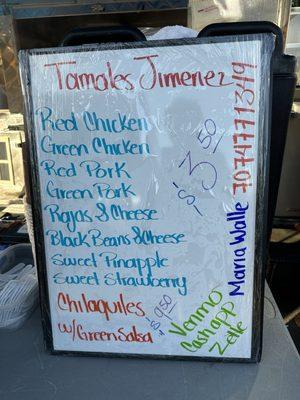 Tamales Jimenez
Red Chicken
Green Chicken
Red Pork
Green Pork
Rajas & Cheese
Black Beans & Cheese
Sweet Pinapple
Sweet Strawberry
$3.50
Chilaquiles
w/Green Salsa
$9.50
Venmo
Cash app
Zelle
Maria Walle 7074771349